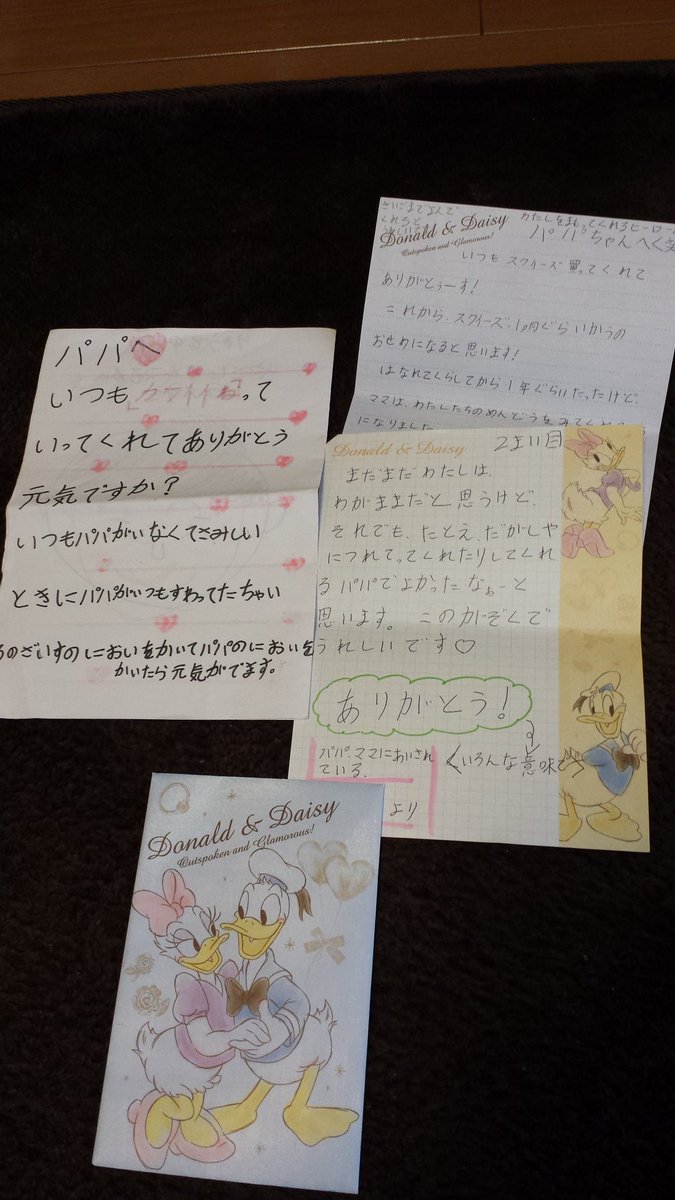 パパへ
いつも「カワイイね」って
いってくれてありがとう
元気ですか?
いつもパパがいなくてさみしい
ときにパパがいつもすわってたちゃい
ろのざいすのにおいをかいてパパのにおいを
かいたら元気がでます。
さいごまでよんで
くれると
うれしいです
わたしをまもってくれるヒーローの
Donald & Daisy
Outspoken and Glamorous!
パパちゃんへ
いつもスクイーズ買ってくれて
ありがとぅーす!
これから、スクイーズ・10月ぐらいからの
おせわになると思います!
はなれてくらしてから1年ぐらいたったけど、
ママは、わたしたちのめんどうをみてくれ
になりました
Donald & Daisy
2まい目
まだまだわたしは、
わがままだと思うけど、
それでも、たとえ、だがしや
につれてってくれたりしてくれ
るパパでよかったなぁーと
思います。このかぞくで
うれしいです♡
ありがとう!
いろんな意味で
パパ、ママにあいされ
ている、
より
Donald & Daisy
Outspoken and Glamorous!